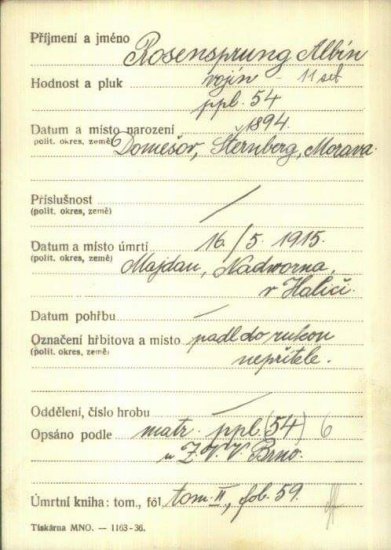 Příjmení a jméno Rosensprung Albín
Hodnost a pluk vojín - 11 setn
ppl. 54
Datum a místo narození 1894.
(polit. okres, země) Domešov, Šternberg, Morava.
Příslušnost /
(polit. okres, země)
Datum a místo úmrtí 16./5. 1915.
(polit. okres, země) Majdan, Nadworna,
v Haliči.
Datum pohřbu /
Označení hřbitova a místo padl do rukou
(polit. okres, země) nepřítele.
Oddělení, číslo hrobu /
Opsáno podle matr. ppl. (54) 6
u Z.V.V. Brno.
Úmrtní kniha: tom., fol. tom. II, fol. 59.
Tiskárna MNO. — 1163-36.